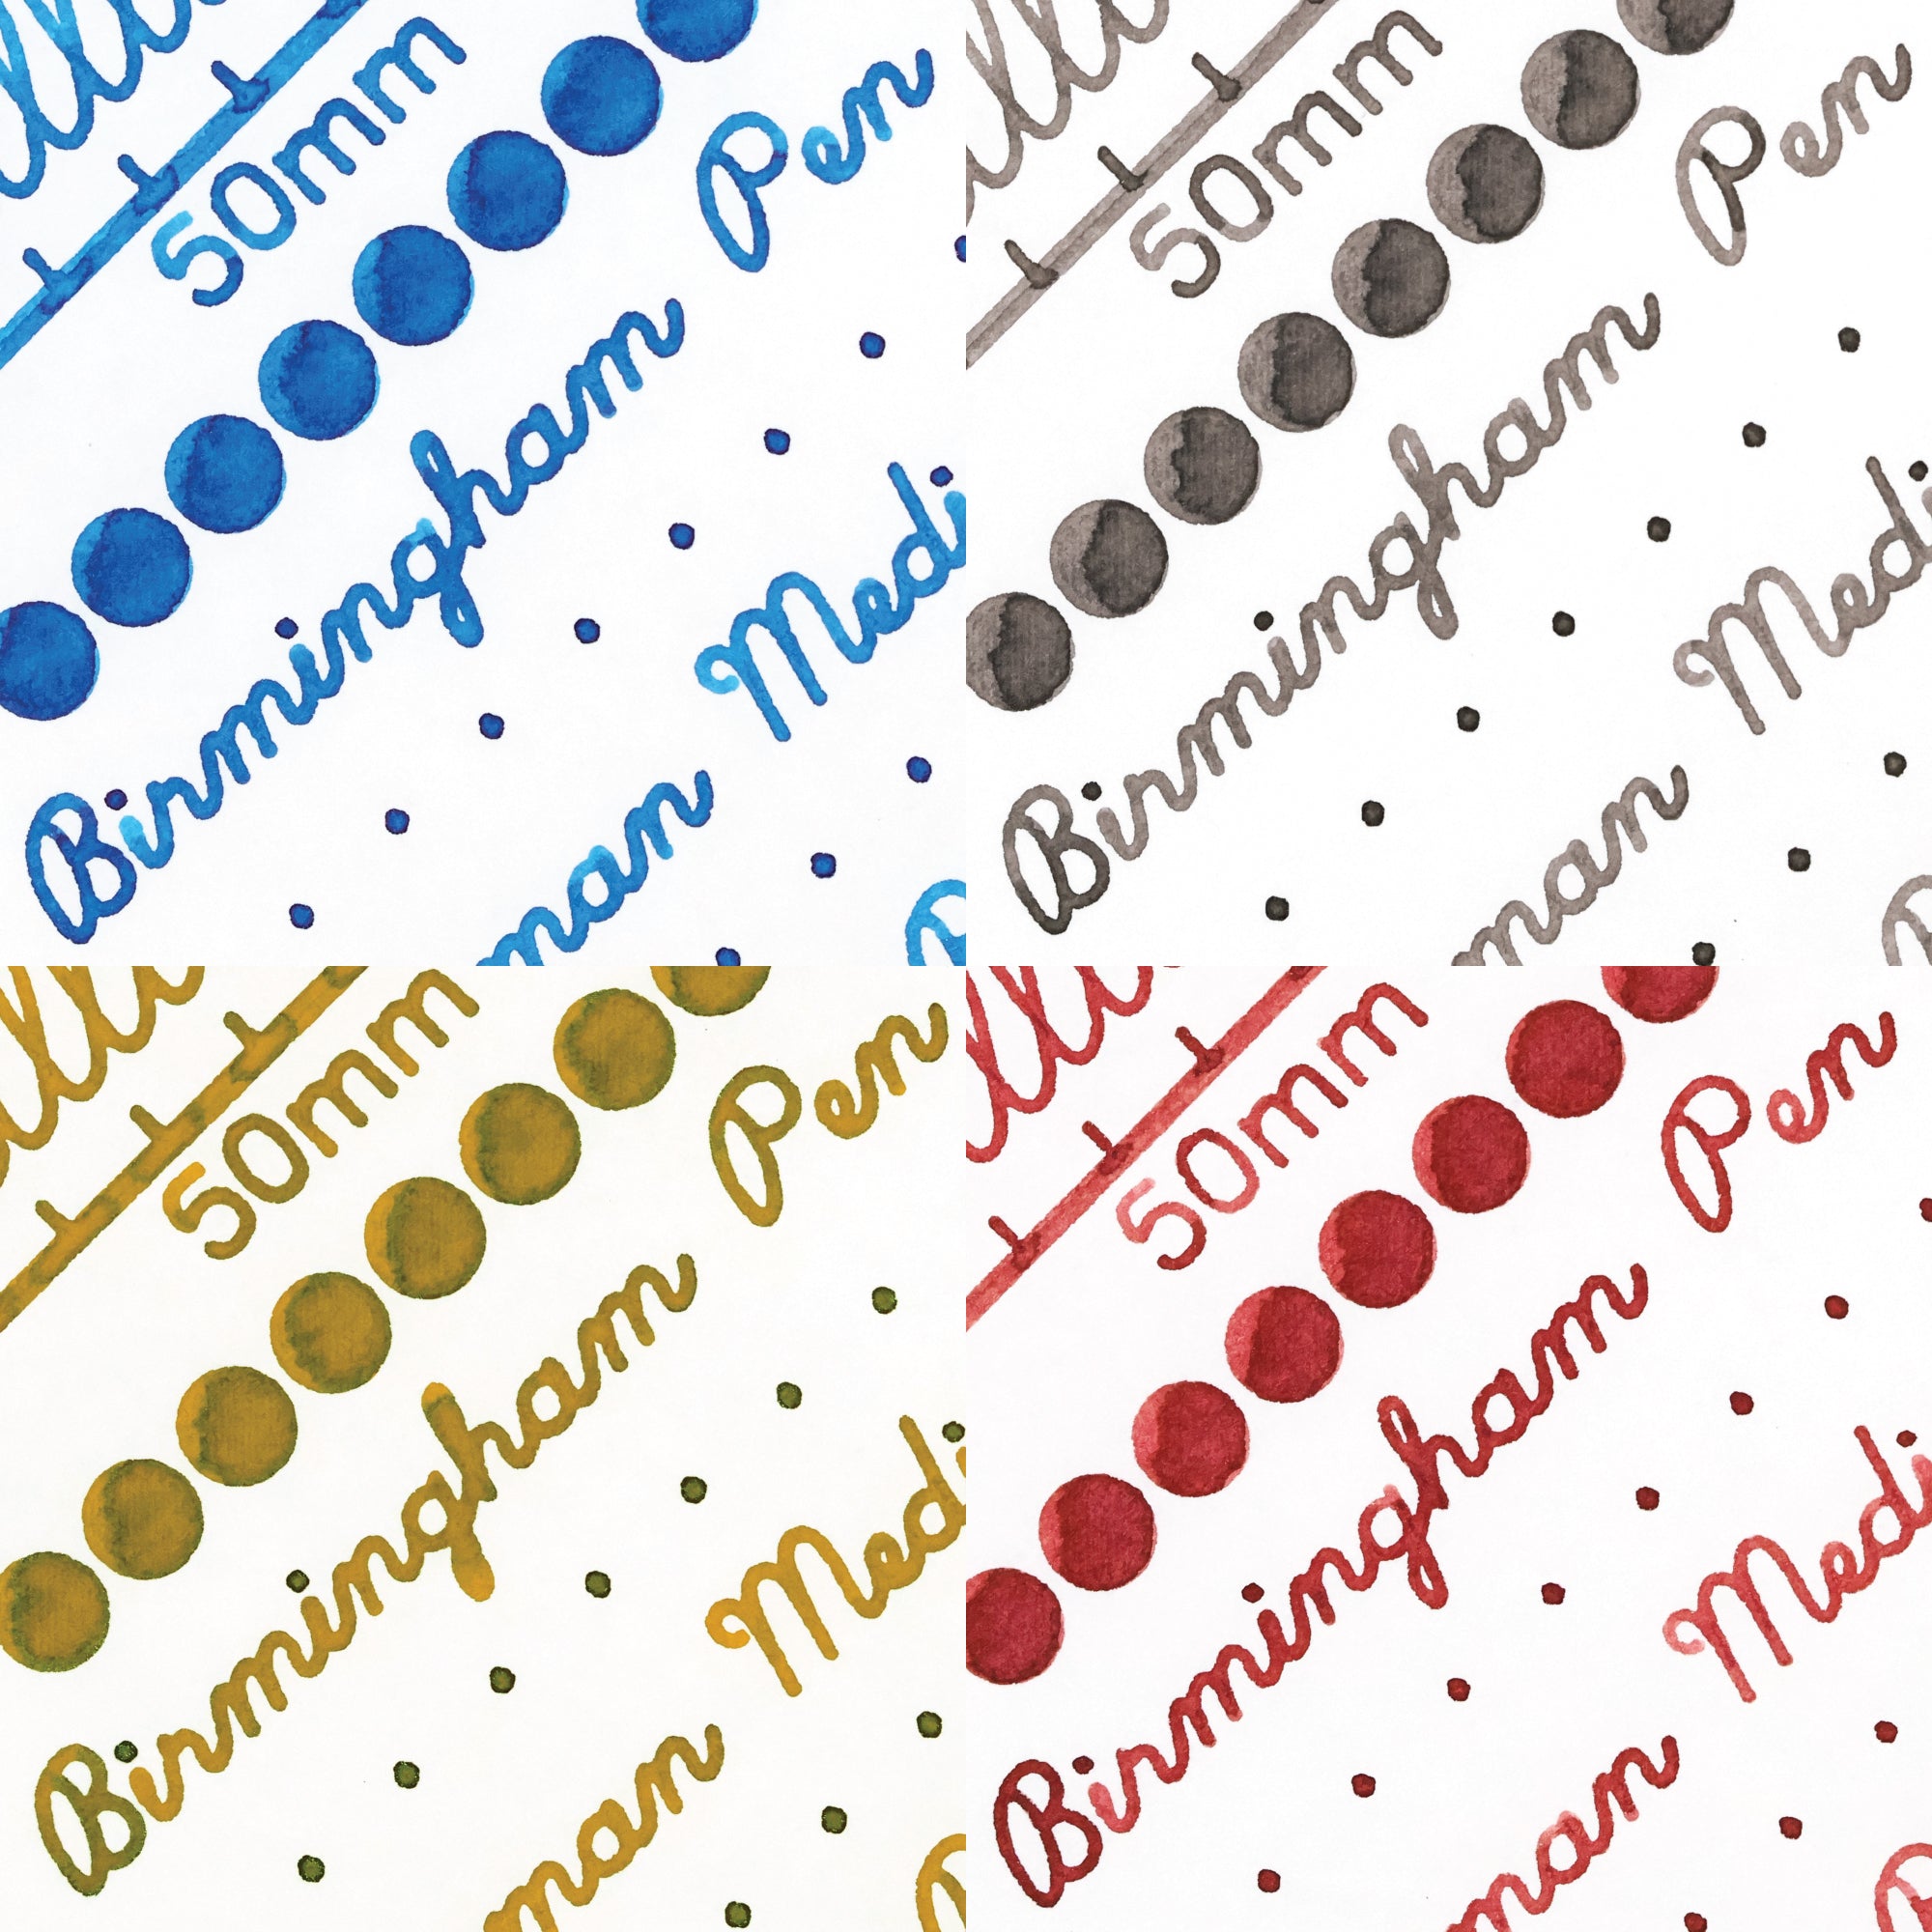 50mm
Birmingham Pen
man Medi
50mm
Birmingham Pen
man Medi
50mm
Birmingham Pen
man Medi
50mm
Birmingham Pen
man Medi